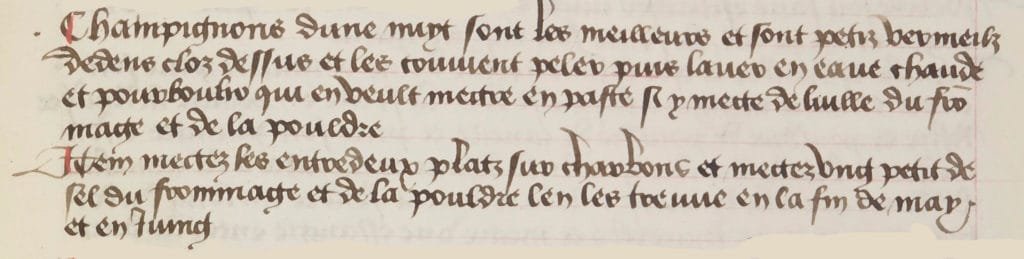 Champignons dune nuyt sont les meilleurs et sont petiz vermeilz
dedens cloz dessus et les couvient peler puis laver en eaue chaude
et pourboulir qui en veult mectre en paste si y mecte de luille du fro
mage et de la pouldre
Item mectez les entredeux platz sur charbons et mectez ung petit de
sel du frommage et de la pouldre len les treuve en la fin de may
et en Juing